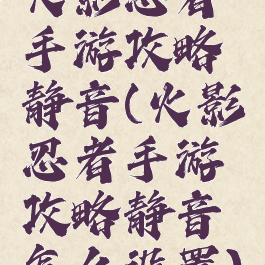 火影忍者
手游攻略
静音(火影
忍者手游
攻略静音
怎么设置)